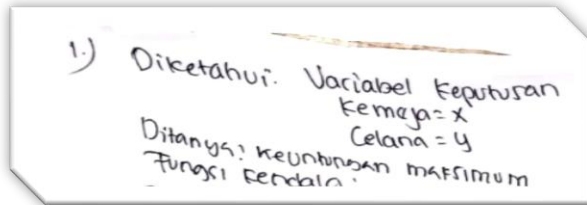 1.) Diketahui: Variabel keputusan
kemeja = x
Celana = y
Ditanya: keuntungan maksimum
Fungsi kendala: